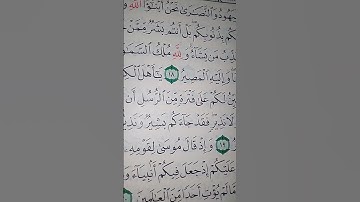 ـهود والنصـرى نحن أبنـؤا الله
ـكم بذنوبكم بل أنتم بشر ممن
ـذب من يشاء ولله ملك السمـ
وإليه المصير ١٨ يـأهل الكـ
ـين لكم على فترة من الرسل أن
ولا نذير فقد جاءكم بشير ونذيـ
١٩ وإذ قال موسى لقومه
عليكم إذ جعل فيكم أنبياء و
مالم يؤت أحدا من العـلمين